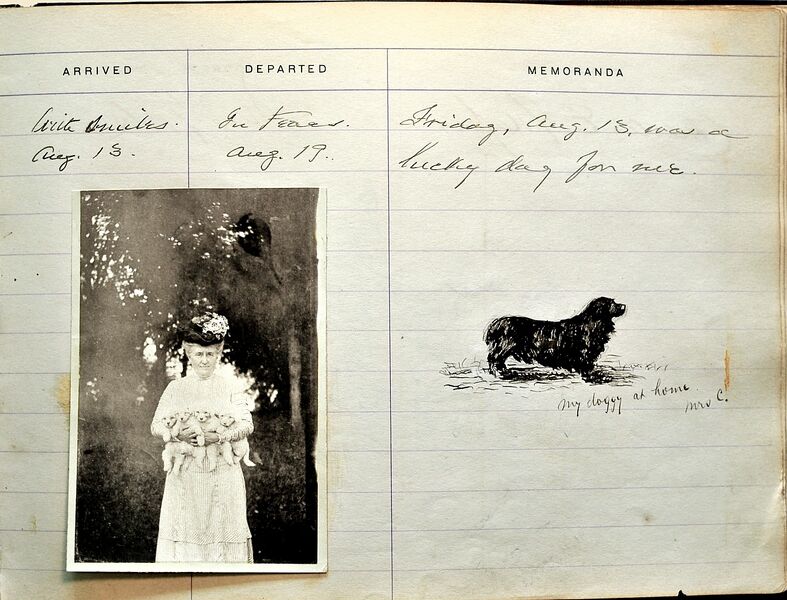 ARRIVED
DEPARTED
MEMORANDA
With smiles.
Aug. 13.
In tears.
Aug. 19.
Friday, Aug. 13, was a
lucky day for me.
my doggy at home.
Mrs C.